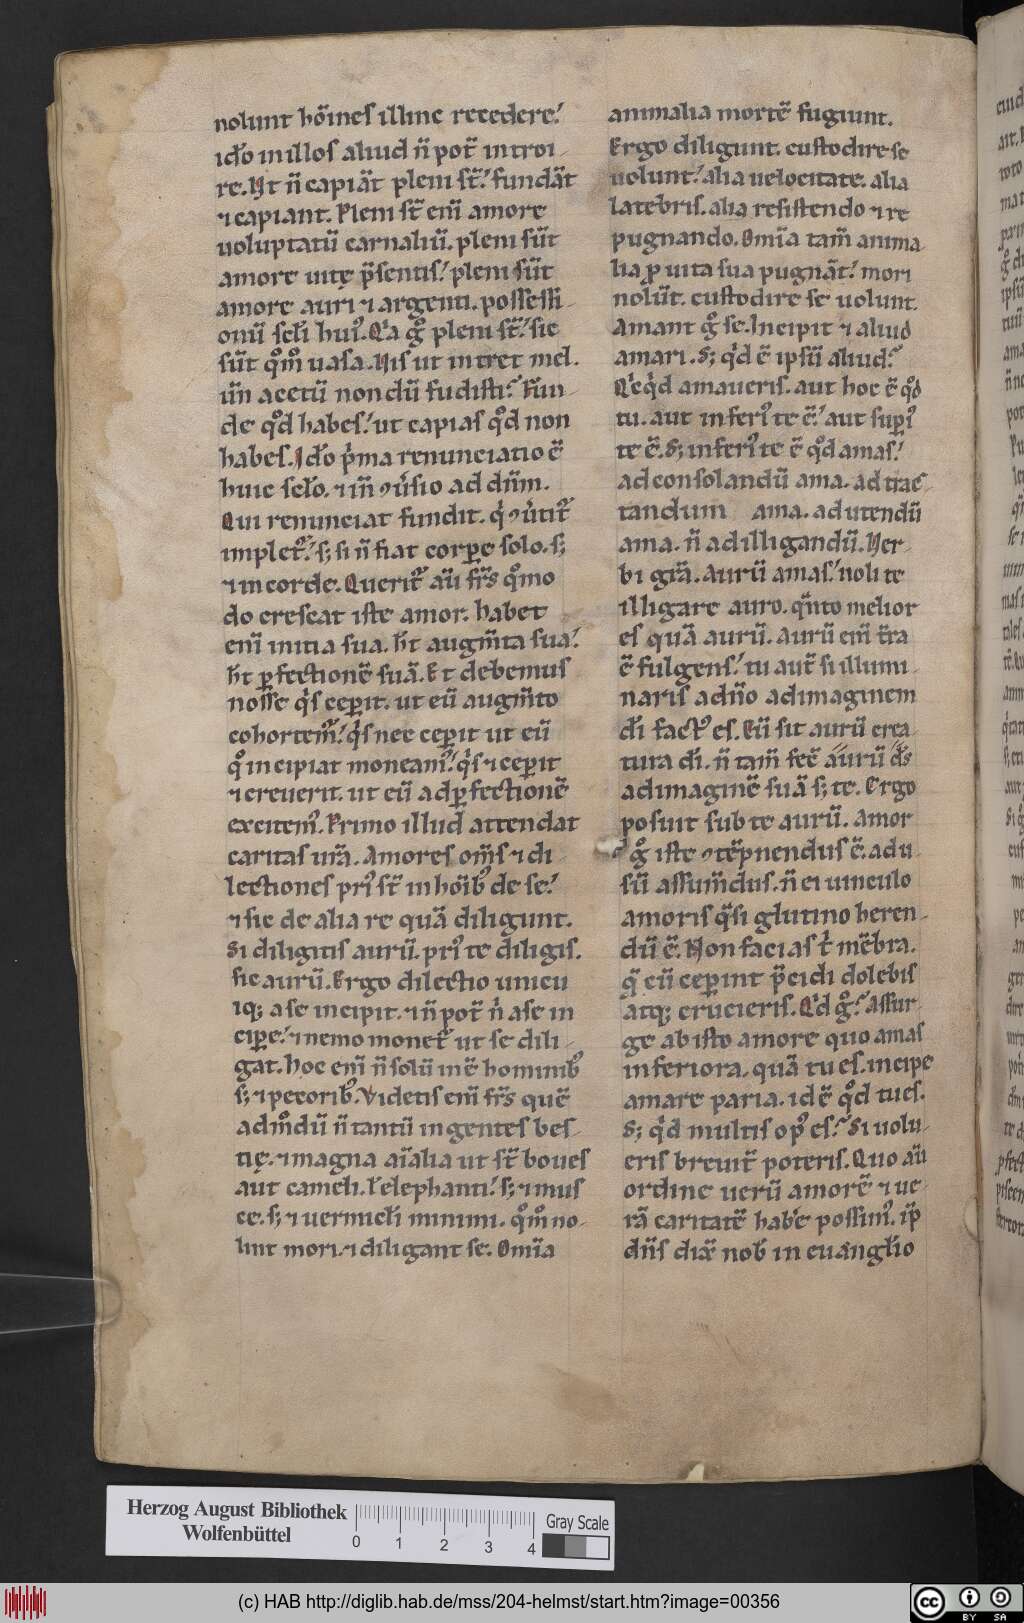 nolunt hoīnes illinc recedere.
idō in illos aliud n̄ pot̄ introi-
re. Ut n̄ capiāt pleni st̄. fundāt
⁊ capiant. Pleni st̄ enī amore
uoluptatū carnaliū. pleni sūt
amore uitę p̄sentis. pleni sūt
amore auri ⁊ argenti. possessi-
onū sc̄li hui᷒. Qͥa gͦ pleni st̄. sic
sūt qͦmͦ uasa. Uis ut intret mel.
un̄ acetū nondū fudisti? Fun-
de qͦd habes. ut capias qͦd non
habes. Idō pͥma renunciatio ē
huic sc̄lo. ⁊ in̄ ꝯu̓sio ad dn̄m.
Qui renunciat fundit. qͥ ꝯu̓tit᷑
implet᷑. s; si n̄ fiat corꝑe solo. s;
⁊ in corde. Querit᷑ aū frs̄ qͦmo
do crescat iste amor. habet
enī initia sua. ht̄ augm̄ta sua.
ht̄ ꝑfectionē suā. Et debemus
nosse qͥs ceꝑit. ut eū augm̄to
cohortem᷑. qͥs nec ceꝑit ut eū
qͦ incipiat moneam᷒. qͥs ⁊ ceꝑit
⁊ creuerit. ut eū ad ꝑfectionē
excitem᷒. Primo illud attendat
caritas ur̄a. Amores om̄s ⁊ di-
lectiones pri᷒ st̄ in hoīb᷒ de se.
⁊ sic de alia re quā diligunt.
Si diligitis aurū. pri᷒ te diligis.
sic aurū. Ergo dilectio unicu
iq; a se incipit. ⁊ n̄ pot̄ nͥ a se in
ciꝑe. ⁊ nemo monet᷑ ut se dili-
gat. Hoc enī n̄ solū inē hominib᷒
s; ⁊ pecorib᷒. Videtis enī frs̄ quē
admͦdū n̄ tantū ingentes bes-
tię. ⁊ magna aīalia ut st̄ boues
aut cameli. ł elephanti. s; ⁊ mus
ce. s; ⁊ uermicłi minimi. qͦmͦ no-
lint mori. ⁊ diligant se. Omīa
animalia mortē fugiunt.
Ergo diligunt. custodire se
uolunt. alia uelocitate. alia
latebris. alia resistendo ⁊ re
pugnando. Omīa tam̄ anima-
lia ꝓ uita sua pugnāt. mori
nolūt. custodire se uolunt.
Amant gͦ se. Incipit ⁊ aliud
amari. S; qͥd ē ipsū aliud?
Qͥcqͥd amaueris. aut hoc ē qͦd
tu. aut inferi᷒ te ē. aut suꝑi᷒
te ē. S; inferi᷒ te ē qͦd amas.
ad consolandū ama. ad trac-
tandum ama. ad utendū
ama. n̄ ad illigandū. Uer-
bi gr̄a. Aurū amas. noli te
illigare auro. qͣnto melior
es quā aurū. aurū enī t̄ra
ē fulgens. tu aut̄ si illumi-
naris a dn̄o ad imaginem
di̅ fact᷒ es. Cū sit aurū crea-
tura di̅. n̄ tam̄ fecē aurū ds̄
ad imaginē suā s; te. Ergo
posuit sub te aurū. Amor
gͦ iste ꝯtēpnendus ē. ad u-
sū assum̄dus. n̄ ei uinculo
amoris qͣsi glutino heren-
dū ē. Non facias tͥ mēbra.
qͣ cū ceꝑint p̄cidi dolebis
atq; crucieris. Qͥd gͦ? Assur-
ge ab isto amore quo amas
inferiora. quā tu es. incipe
amare paria. id ē qͦd tu es.
S; qͥd multis op᷒ es? Si uolu-
eris breuit̄ poteris. Quo aū
ordine uerū amorē ⁊ ue-
rā caritatē habe᷑ possim᷒. ip̄
dn̄s dix̄ nob̄ in euangłio
Herzog August Bibliothek
Wolfenbüttel
0 1 2 3 4
Gray Scale
(c) HAB http://diglib.hab.de/mss/204-helmst/start.htm?image=00356
cc BY SA